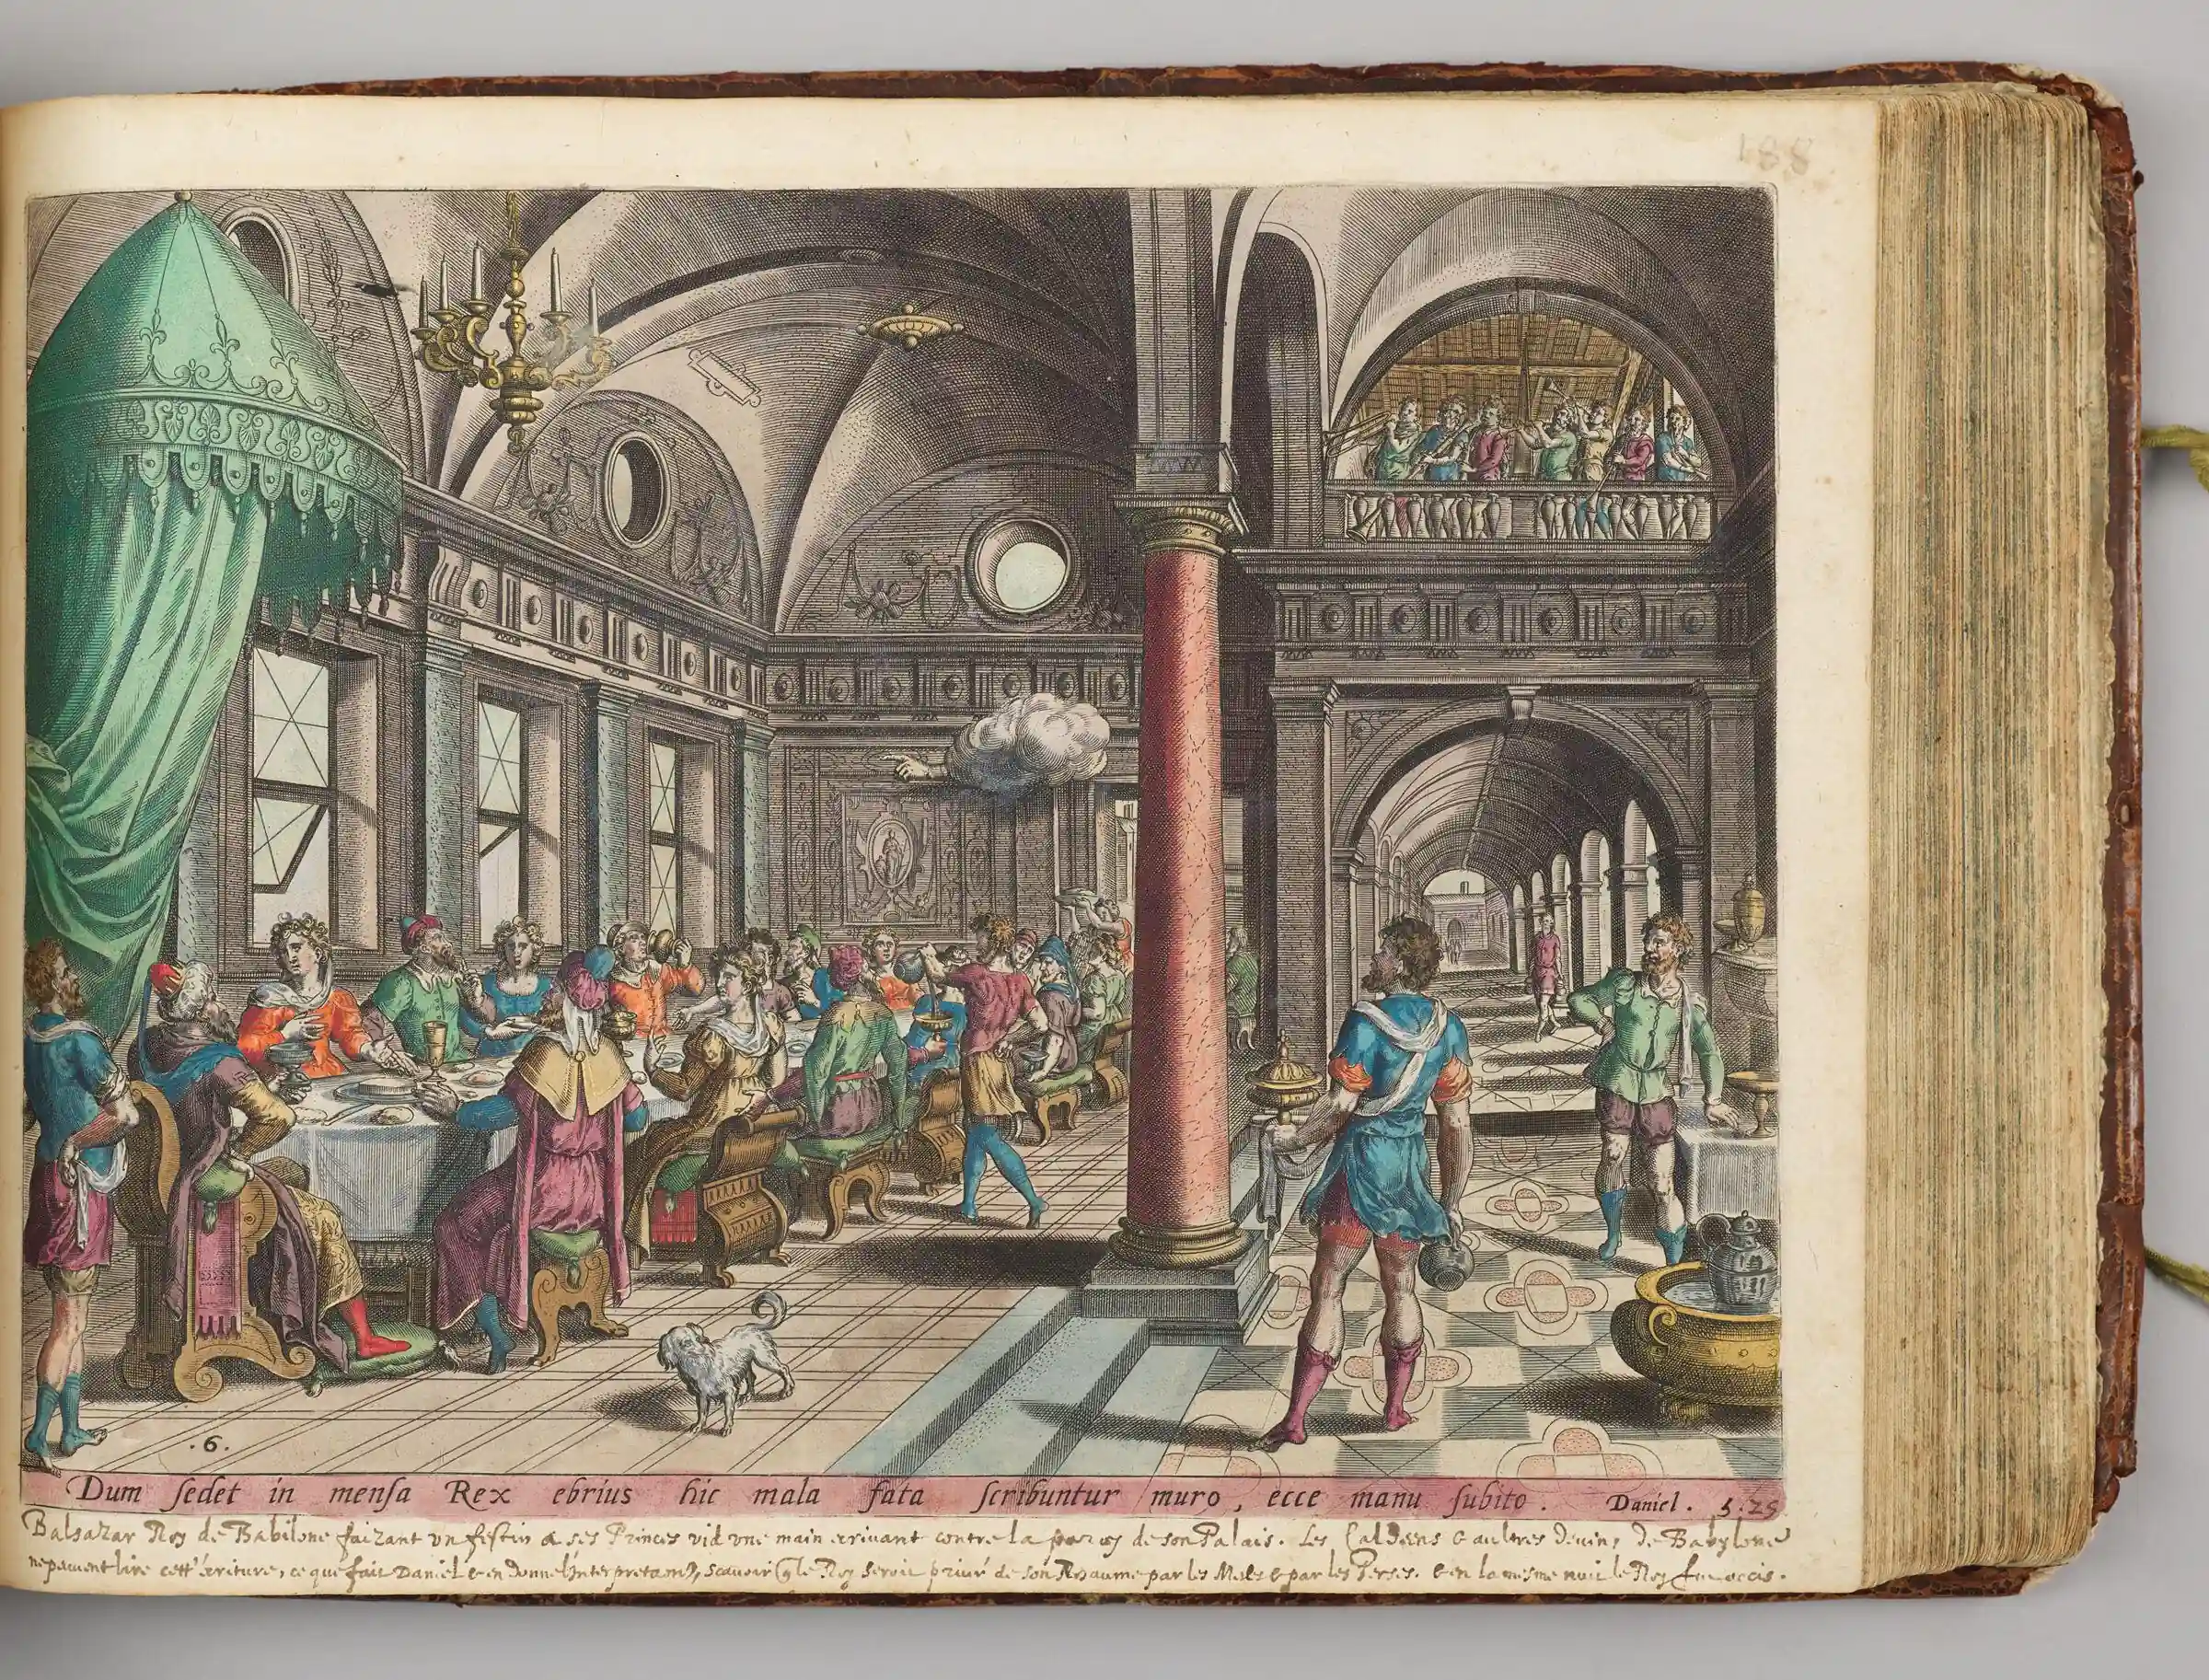 188
.6.
Dum ſedet in menſa Rex ebrius hic mala fata ſcribuntur muro, ecce manu ſubito. Daniel. 5.25
Balsazar Roy de Babilone faizant vn festin a ses Princes vid vne main ecriuant contre la paroy de son Palais. Les Caldeens & aultres deuins de Babylone
ne peuuent lire cett' écriture, ce que fait Daniel & en donne l'Interpretam̃, scauoir q̃ le Roy seroit priué de son Roiaume par les Medes & par les Perses. & en la mesme nuit le Roy fut occis.